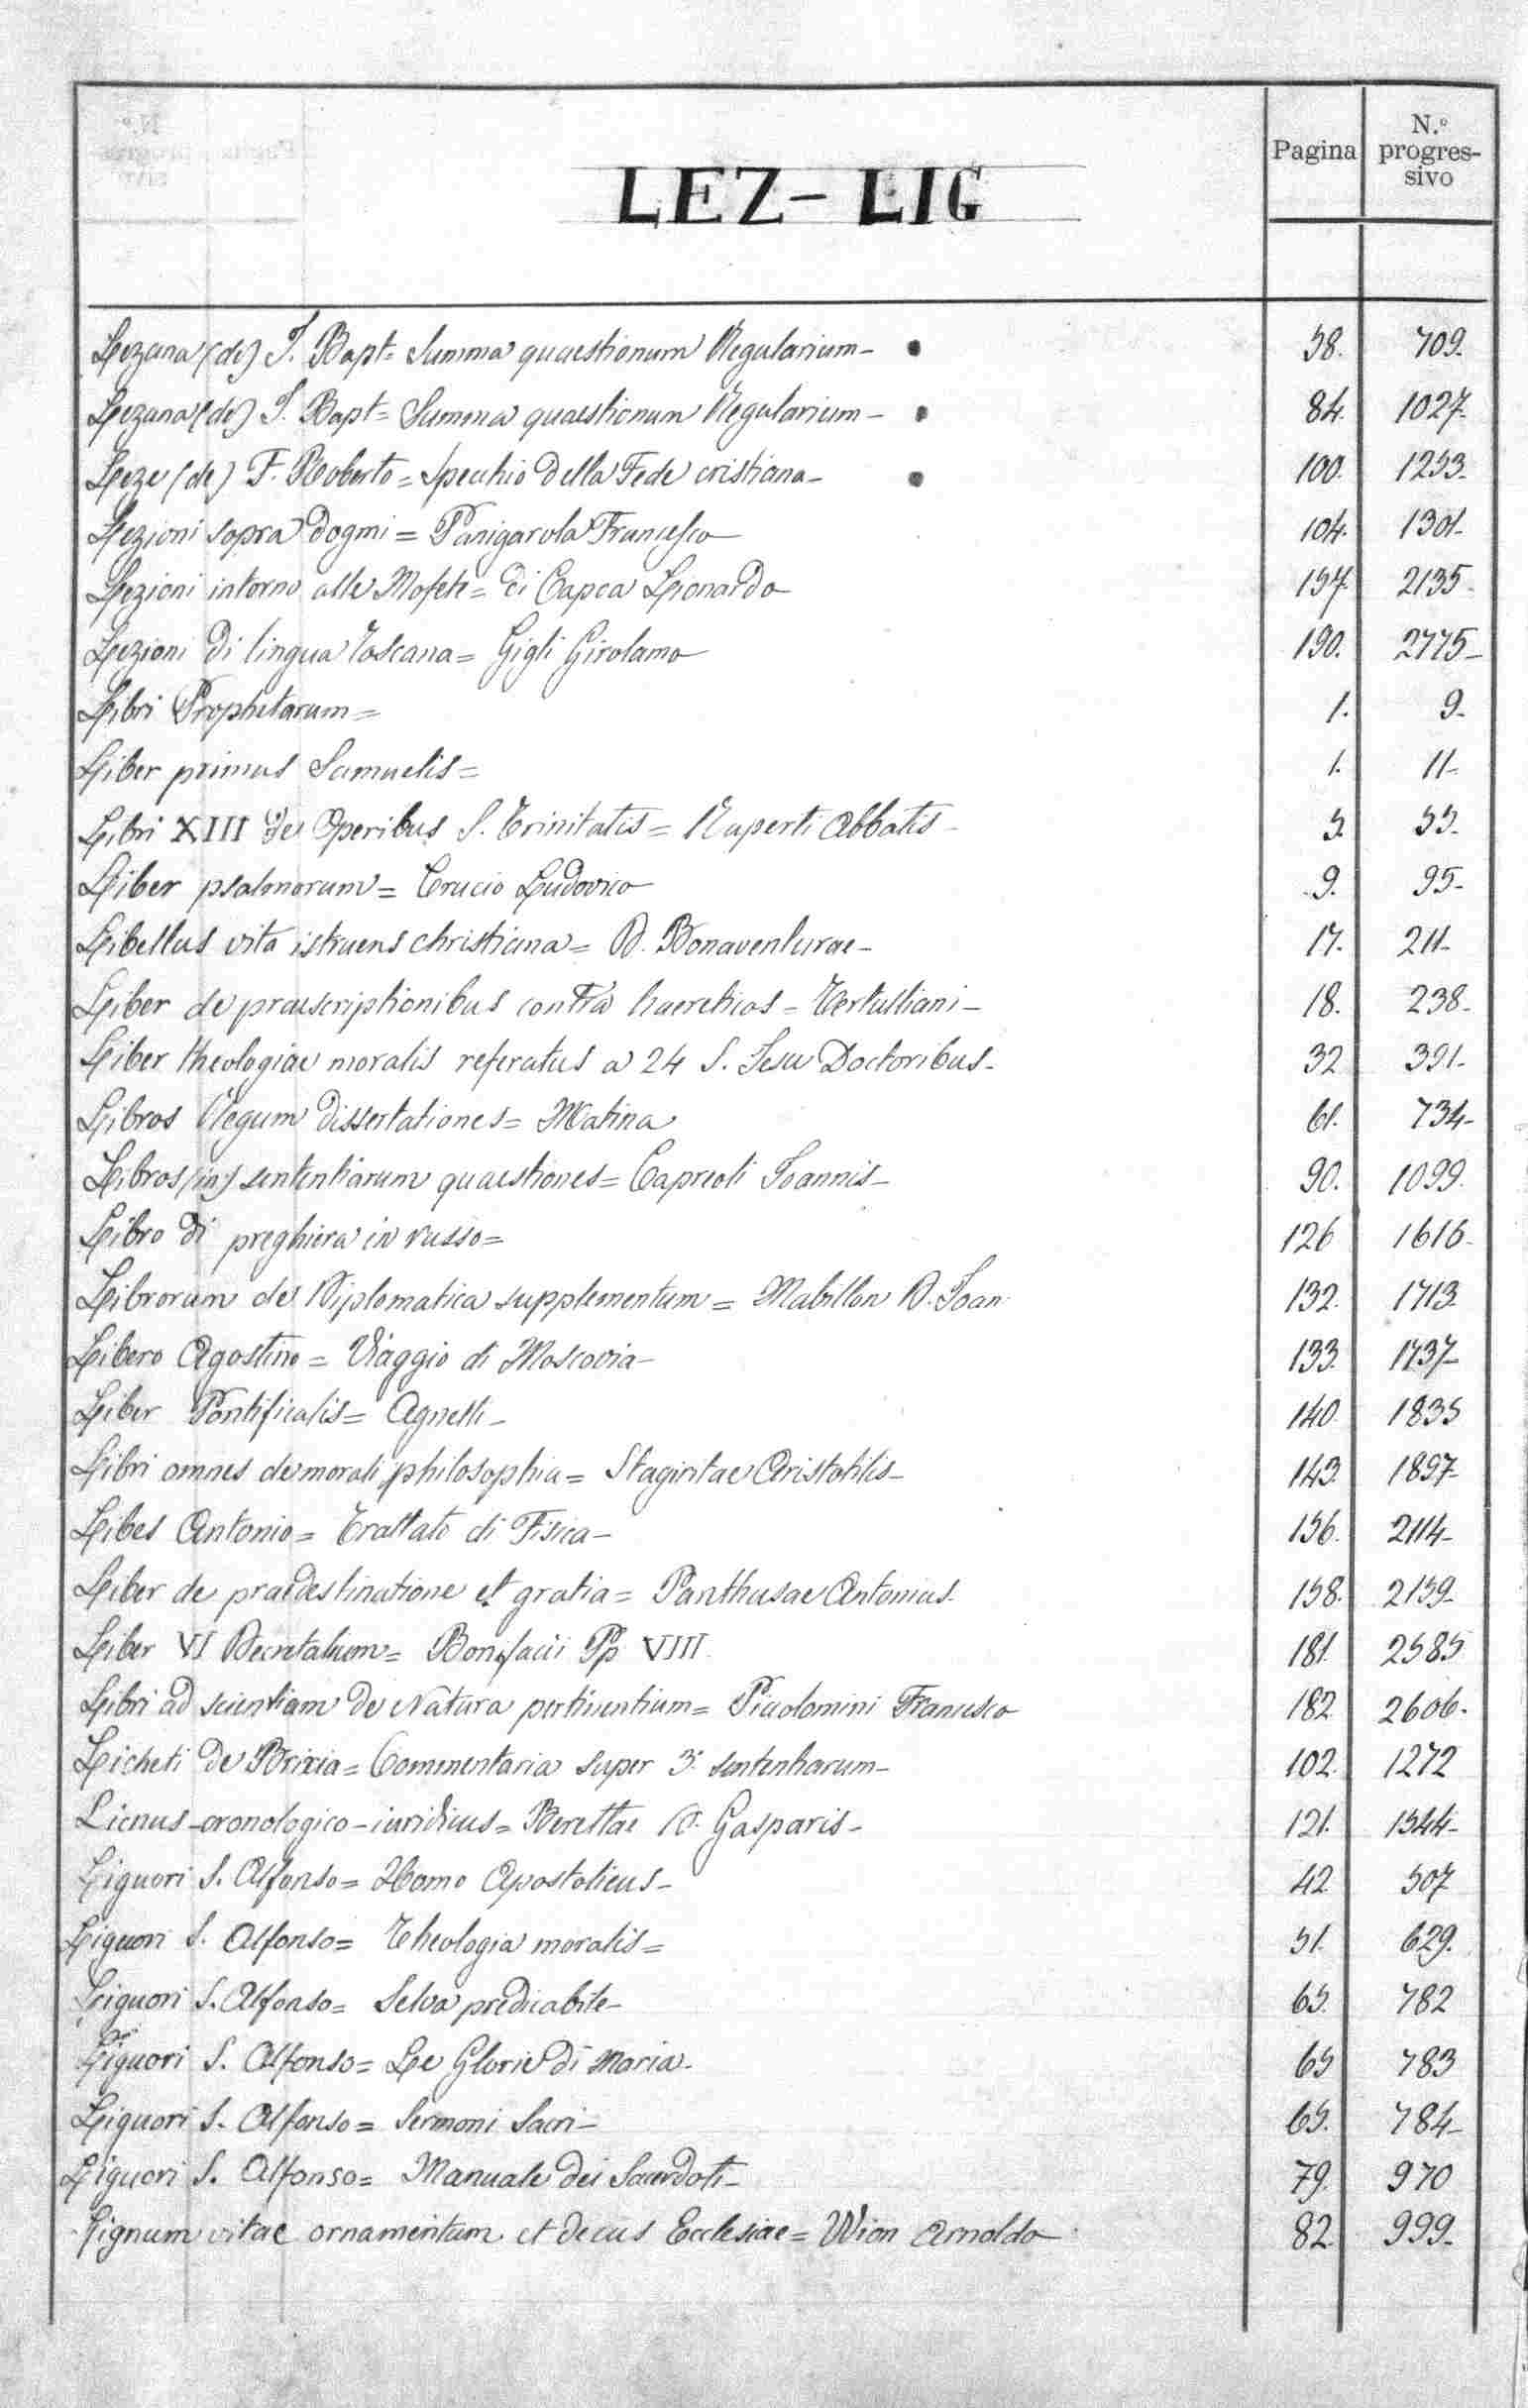 Pagina
N.º progressivo
LEZ - LIG
Lezana (de) I. Bapt = Summa quaestionum Regularium - • 58. 709.
Lezana (de) I. Bapt = Summa quaestionum Regularium - • 84. 1027-
Leze (de) F. Roberto = Specchio della Fede cristiana - • 100. 1253-
Lezioni sopra dogmi = Panigarola Francesco 104. 1301-
Lezioni intorno alle Mofete = di Capoa Lionardo 157. 2135-
Lezioni di lingua toscana = Gigli Girolamo 190. 2775-
Libri Prophetarum = 1. 9-
Liber primus Samuelis = 1. 11-
Libri XIII de Operibus S. Trinitatis = Ruperti Abbatis - 5. 55-
Liber psalmorum = Crucio Ludovico 9. 95-
Libellus vita istruens christiana = D. Bonaventurae - 17. 211-
Liber de praescriptionibus contra haereticos = Tertulliani - 18. 238-
Liber theologiae moralis referatus a 24 S. Iesu Doctoribus - 32 391-
Libros Regum dissertationes = Matina 61. 734-
Libros (in) sententiarum quaestiones = Capreoli Ioannis - 90. 1099.
Libro di preghiera in russo = 126 1616-
Librorum de Diplomatica supplementum = Mabillon D. Ioan. 132. 1713-
Libero Agostino = Viaggio di Moscovia - 133. 1737-
Liber Pontificalis = Agnelli - 140. 1835
Libri omnes de morali philosophia = Stagiritae Aristotilis - 143. 1897-
Libes Antonio = Trattato di Fisica - 156. 2114-
Liber de praedestinatione et gratia = Panthusae Antonius. 158. 2159-
Liber VI Decretalium = Bonifacii Pp VIII. 181. 2585
Libri ad scientiam de Natura pertinentium = Picolomini Francesco 182. 2606.
Licheti de Brixia = Commentaria super 3. sententiarum - 102. 1272
Licnus - cronologico - iuridicus = Berettae D. Gasparis - 121. 1544-
Liguori S. Alfonso = Homo Apostolicus - 42. 507
Liguori S. Alfonso = Theologia moralis = 51. 629.
Liguori S. Alfonso = Selva predicabile - 65. 782
Liguori S. Alfonso = Le Glorie di Maria - 65 783
Liguori S. Alfonso = Sermoni Sacri - 65. 784-
Liguori S. Alfonso = Manuale dei Sacerdoti - 79. 970
Lignum vitae ornamentum et decus Ecclesiae = Wion Arnoldo 82. 999-